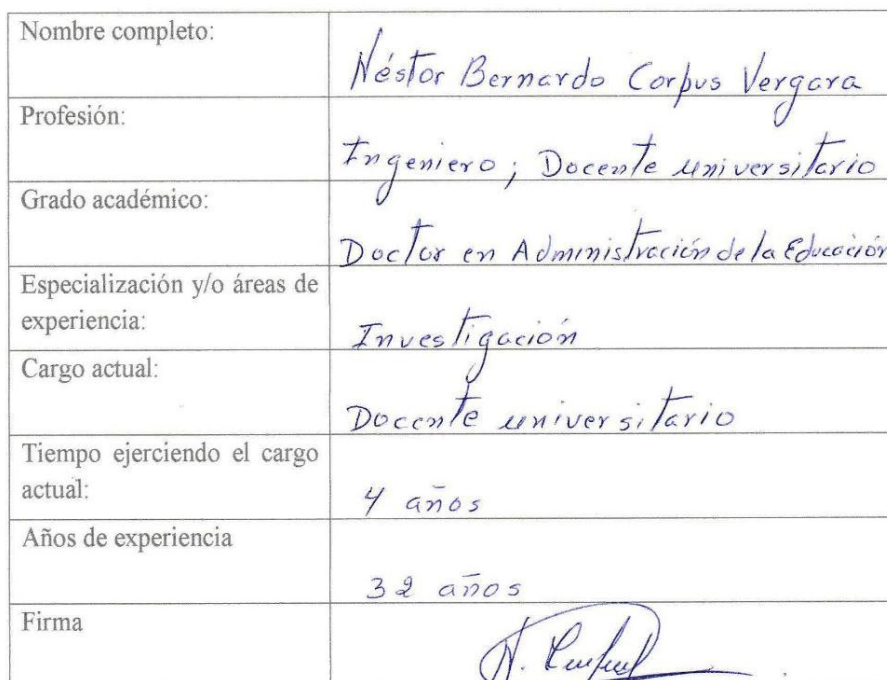 Nombre completo:
Néstor Bernardo Corpus Vergara
Profesión:
Ingeniero; Docente universitario
Grado académico:
Doctor en Administración de la Educación
Especialización y/o áreas de
experiencia:
Investigación
Cargo actual:
Docente universitario
Tiempo ejerciendo el cargo
actual:
4 años
Años de experiencia
32 años
Firma